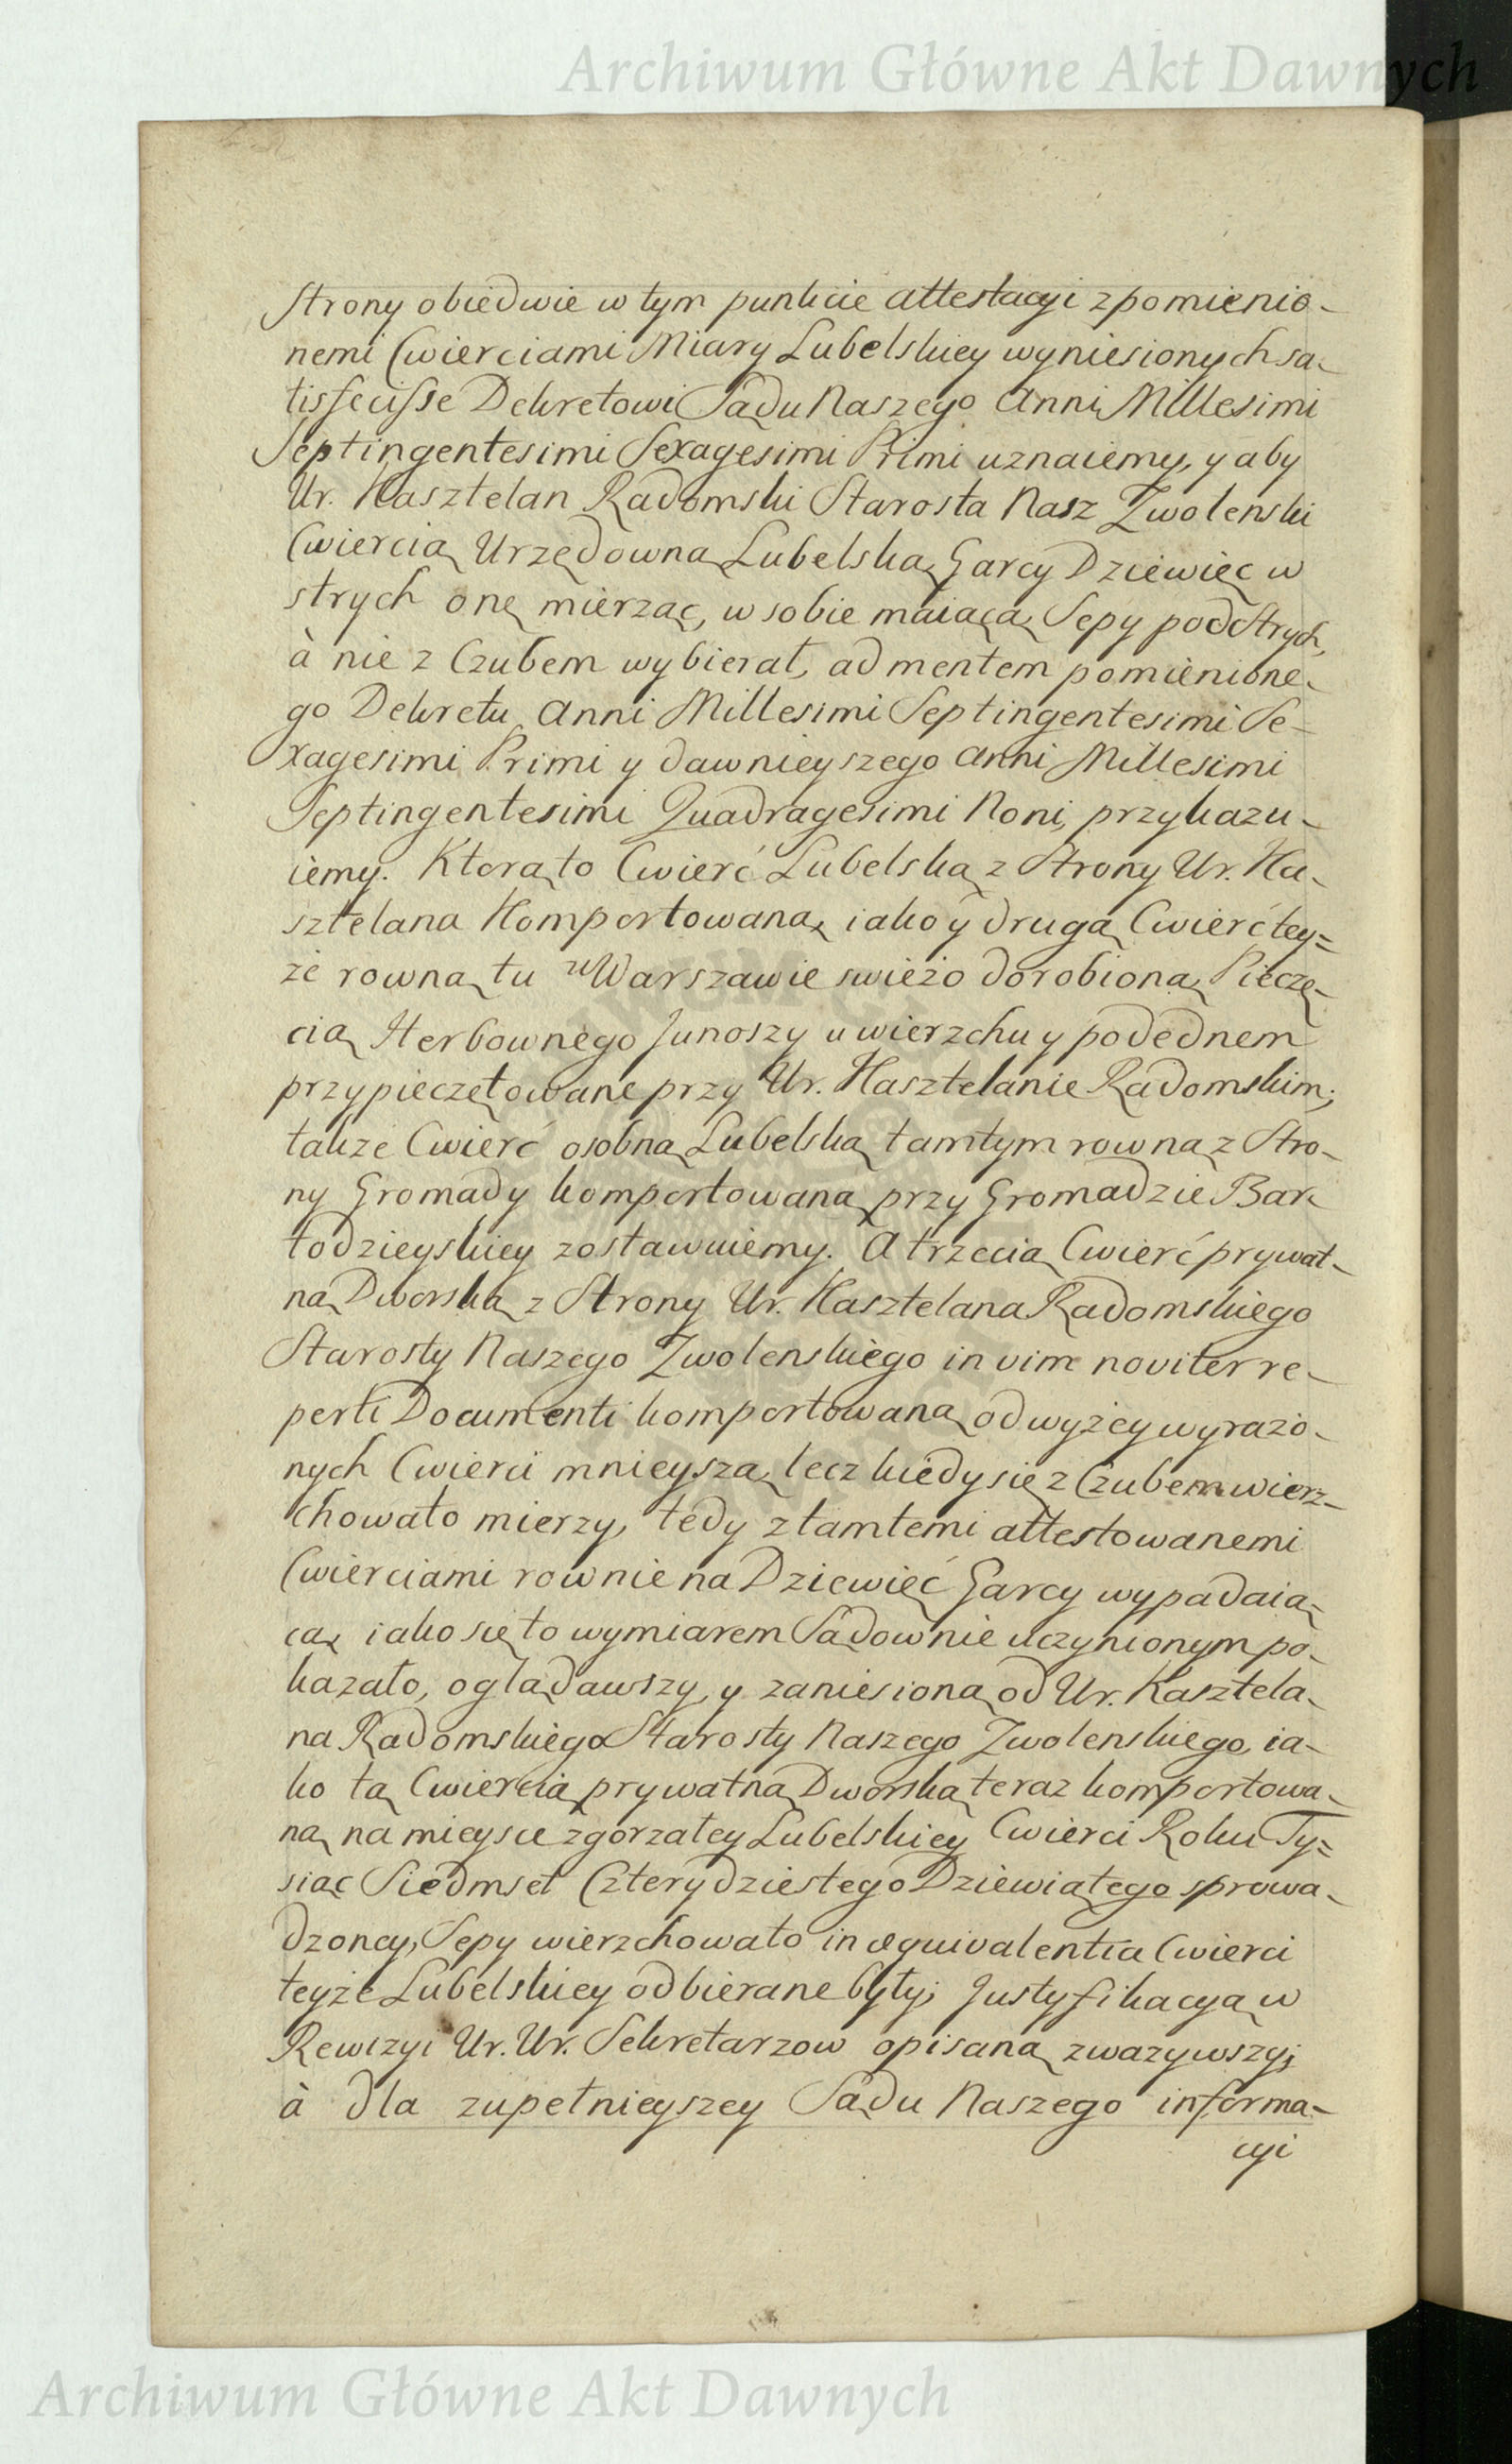 Archiwum Główne Akt Dawnych
Strony obiedwie w tym punkcie attestacyi z pomienio-
nemi Cwierciami Miary Lubelskiey wyniesionych sa-
tisfecisse Dekretowi Sądu Naszego Anni Millesimi
Septingentesimi Sexagesimi Primi uznaiemy, y aby
Ur. Kasztelan Radomski Starosta Nasz Zwolenski
Cwiercią Urzędowną Lubelską, Garcy Dziewięc w
strych onę mierząc, w sobie maiącą, Sepy pod Strych,
à nie z Czubem wybierał, ad mentem pomienione-
go Dekretu Anni Millesimi Septingentesimi Se-
xagesimi Primi y dawnieyszego Anni Millesimi
Septingentesimi Quadragesimi Noni, przykazu-
iemy. Ktorą to Cwierć Lubelską z Strony Ur. Ka-
sztelana Komportowaną, iako y drugą Cwierć tey=
że rowną tu w Warszawie swieżo dorobioną, Pieczę-
cią Herbownego Junoszy u wierzchu y podednem
przypieczętowane przy Ur. Kasztelanie Radomskim;
także Cwierć osobną Lubelską tamtym rowną z Stro-
ny Gromady komportowaną przy Gromadzie Bar-
todzieyskiey zostawuiemy. A trzecią Cwierć prywat-
ną Dworską z Strony Ur. Kasztelana Radomskiego
Starosty Naszego Zwolenskiego in vim noviter re-
perti Documenti komportowaną od wyżey wyrażo-
nych Cwierci mnieyszą, lecz kiedy się z Czubem wierz-
chowato mierzy, tedy z tamtemi attestowanemi
Cwierciami rownie na Dziewięć Garcy wypadaią-
cą, iako się to wymiarem Sądownie uczynionym po-
kazało, oglądawszy, y zaniesioną od Ur. Kasztela-
na Radomskiego Starosty Naszego Zwolenskiego, ia-
ko tą Cwiercią prywatną Dworską teraz komportowa-
ną na mieysce zgorzałey Lubelskiey Cwierci Roku Ty=
siąc Siedmset Czterydziestego Dziewiątego sprowa-
dzoney, Sepy wierzchowato in æquivalentia Cwierci
teyże Lubelskiey odbierane były; Justyfikacyą w
Rewizyi Ur. Ur. Sekretarzow opisaną zważywszy;
à dla zupełnieyszey Sądu Naszego informa-
cyi
Archiwum Główne Akt Dawnych